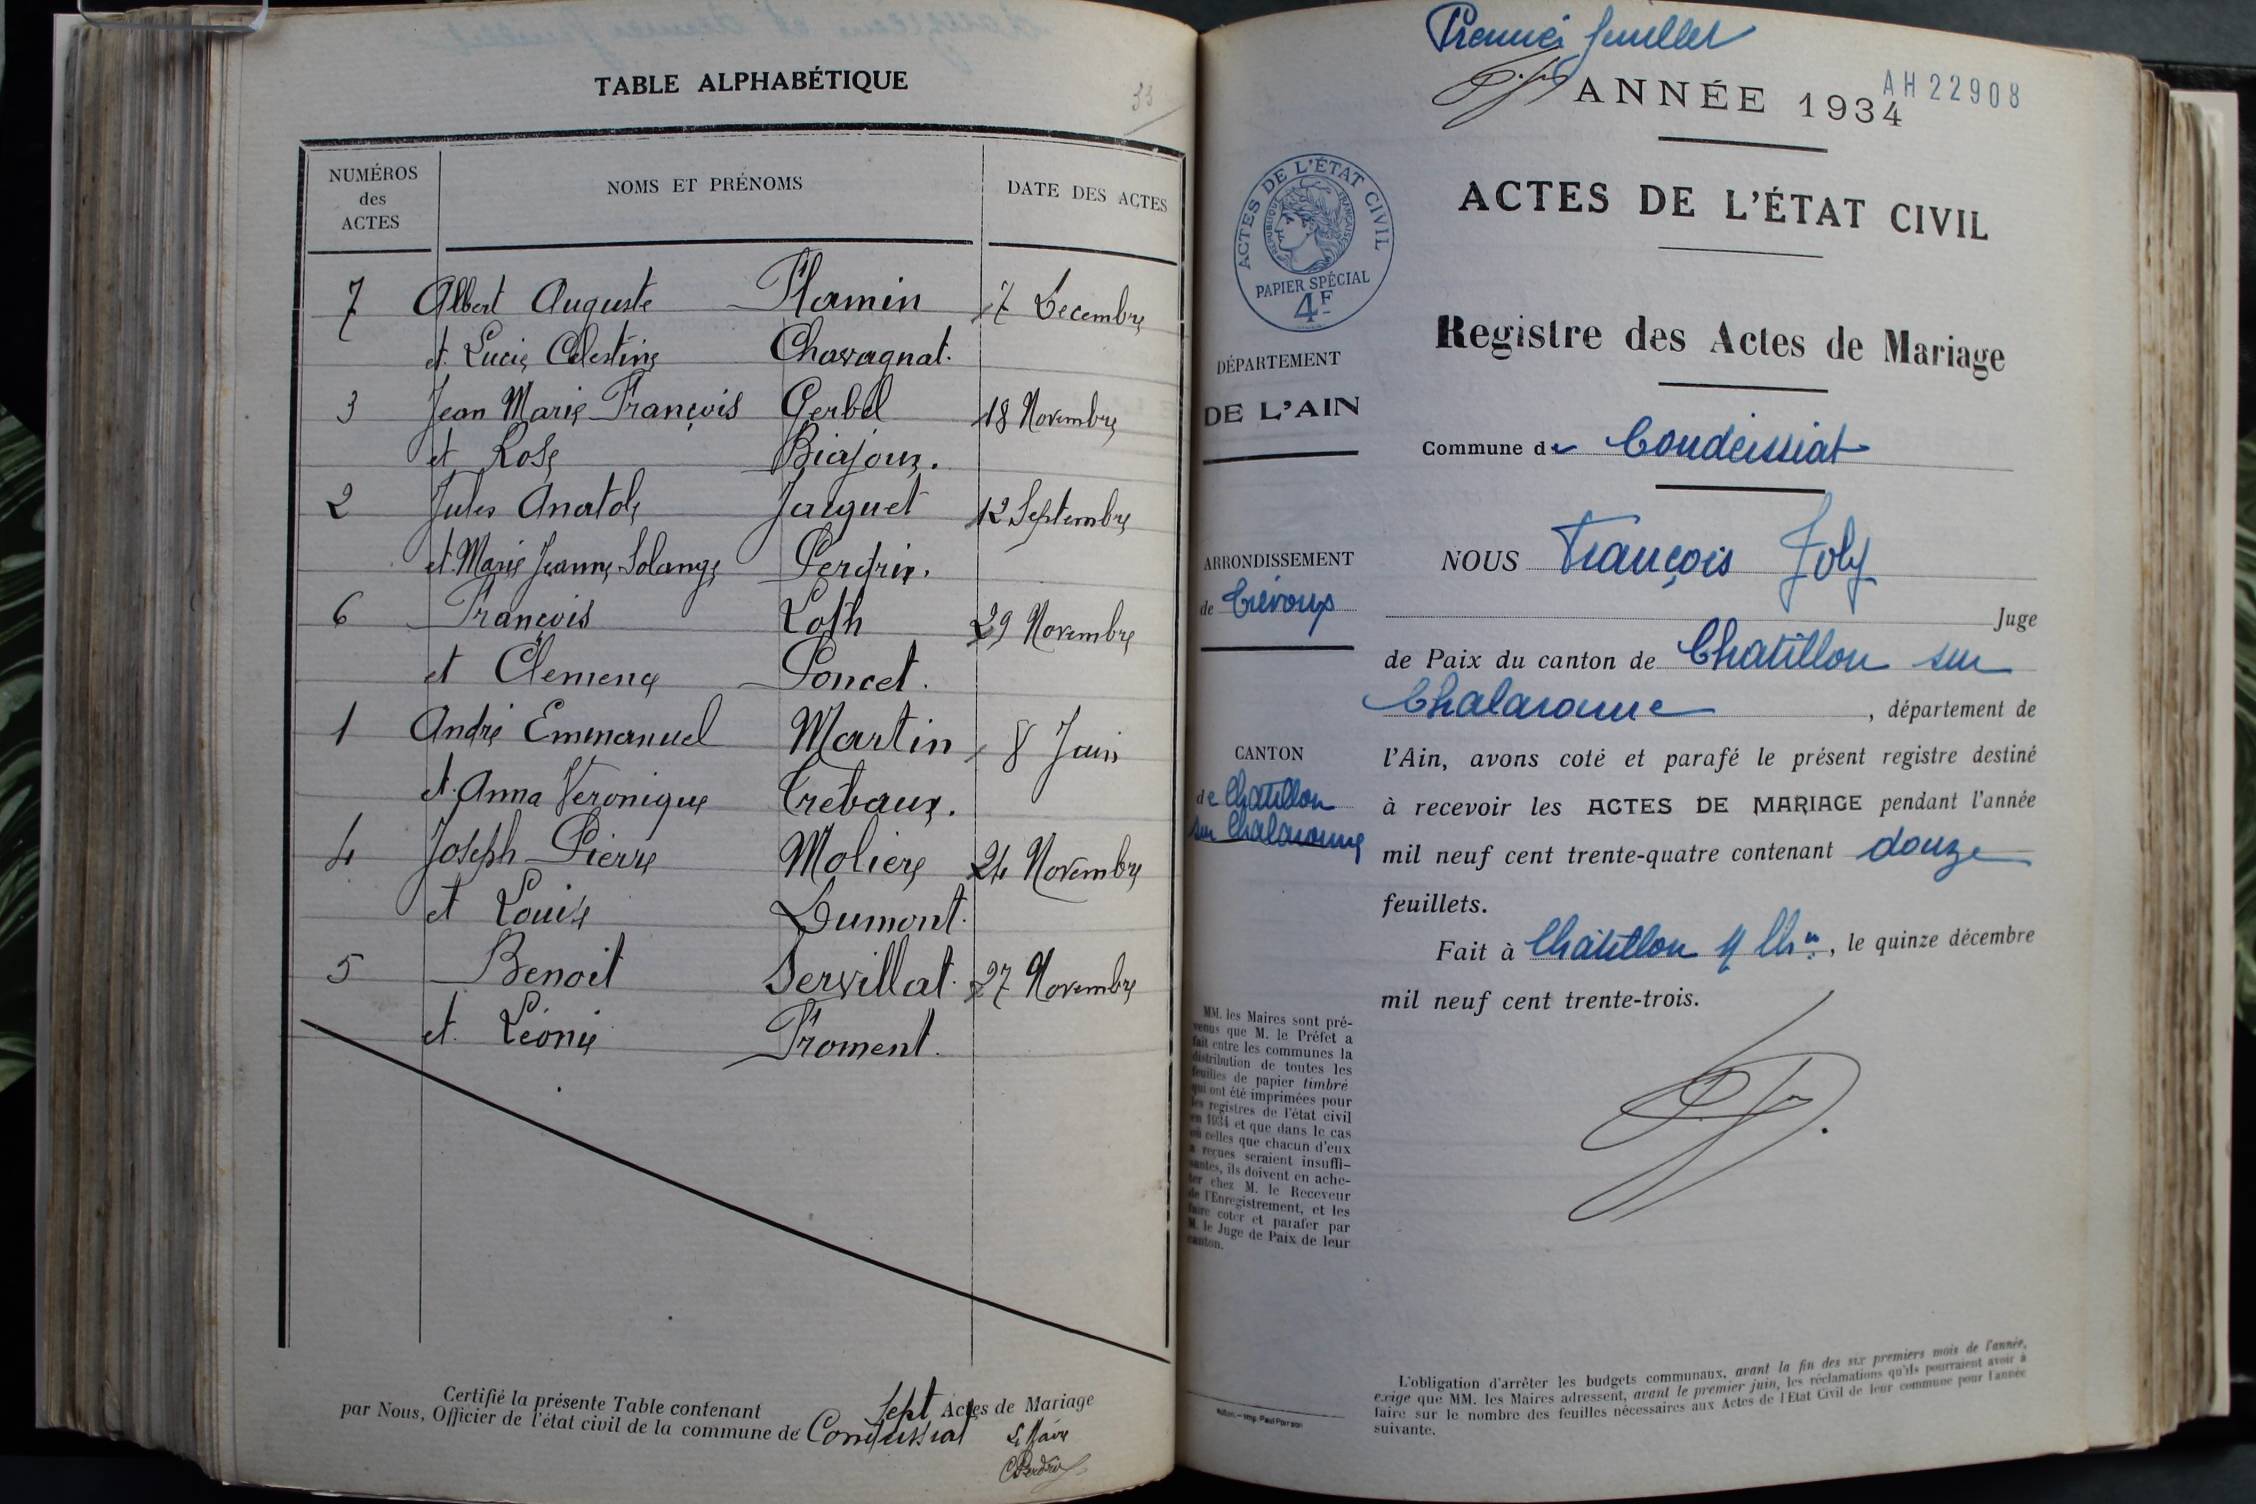 TABLE ALPHABÉTIQUE
33
NUMÉROS des ACTES NOMS ET PRÉNOMS DATE DES ACTES
7 Albert Auguste Flamin 7 Decembre
et Lucie Celestine Chavagnat.
3 Jean Marie François Gerbel 18 Novembre
et Rose Biajoux.
2 Jules Anatole Jacquet 12 Septembre
et Marie Jeanne Solange Perdrix.
6 François Loth 29 Novembre
et Clemence Poncet.
1 André Emmanuel Martin 8 Juin
et Anna Veronique Trebaux.
4 Joseph Pierre Moliere 24 Novembre
et Louise Dumont.
5 Benoit Servillat. 27 Novembre
et Léonie Froment.
Certifié la présente Table contenant Sept Actes de Mariage
par Nous, Officier de l'état civil de la commune de Condeissiat
Le Maire
CPerdrix
Premier feuillet
ANNÉE 1934
AH 22908
ACTES DE L'ÉTAT CIVIL
RÉPUBLIQUE FRANÇAISE
PAPIER SPÉCIAL
4F
ACTES DE L'ÉTAT CIVIL
Registre des Actes de Mariage
DÉPARTEMENT
DE L'AIN
ARRONDISSEMENT
de Trévoux
CANTON
de Chatillon
sur Chalaronne
Commune de Condeissiat
NOUS François Joly
Juge
de Paix du canton de Chatillon sur
Chalaronne, département de
l'Ain, avons coté et parafé le présent registre destiné
à recevoir les ACTES DE MARIAGE pendant l'année
mil neuf cent trente-quatre contenant douze
feuillets.
Fait à Châtillon s/ Chne, le quinze décembre
mil neuf cent trente-trois.
MM. les Maires sont pré-
venus que M. le Préfet a
fait entre les communes la
distribution de toutes les
feuilles de papier timbré
qui ont été imprimées pour
les registres de l'état civil
en 1934 et que dans le cas
où celles que chacun d'eux
a reçues seraient insuffi-
santes, ils doivent en ache-
ter chez M. le Receveur
de l'Enregistrement, et les
faire coter et parafer par
M. le Juge de Paix de leur
canton.
L'obligation d'arrêter les budgets communaux, avant la fin des six premiers mois de l'année,
exige que MM. les Maires adressent, avant le premier juin, les réclamations qu'ils pourraient avoir à
faire sur le nombre des feuilles nécessaires aux Actes de l'Etat Civil de leur commune pour l'année
suivante.
Imp. Paul